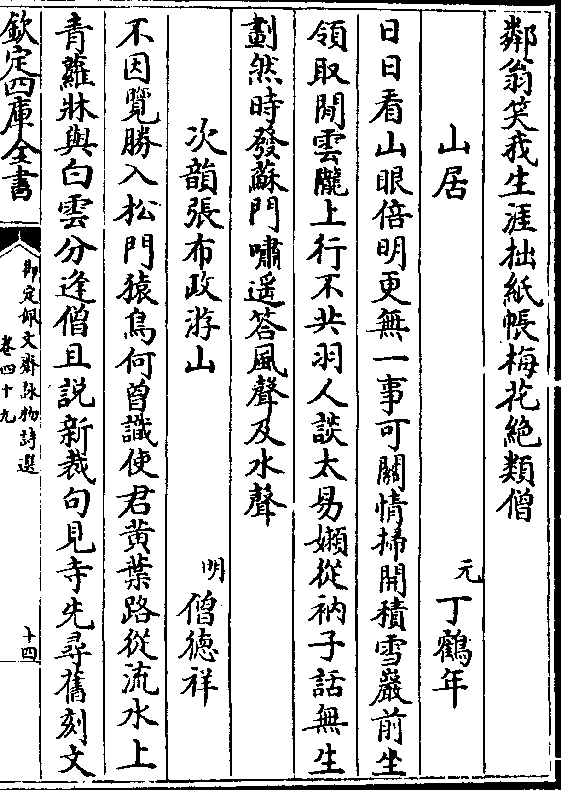 鄰翁笑我生涯拙紙帳梅花絶類僧
山居
元丁鶴年
日日看山眼倍明更無一事可關情掃開積雪巖前坐
領取閒雲隴上行不共羽人談太易嬾從衲子話無生
劃然時發蘇門嘯遥答風聲及水聲
次韻張布政游山
明僧德祥
不因覽勝入松門猿鳥何曾識使君黄葉路從流水上
青蘿牀與白雲分逢僧且説新裁句見寺先尋舊刻文
欽定四庫全書
御定佩文齋詠物詩選
卷四十九
十四